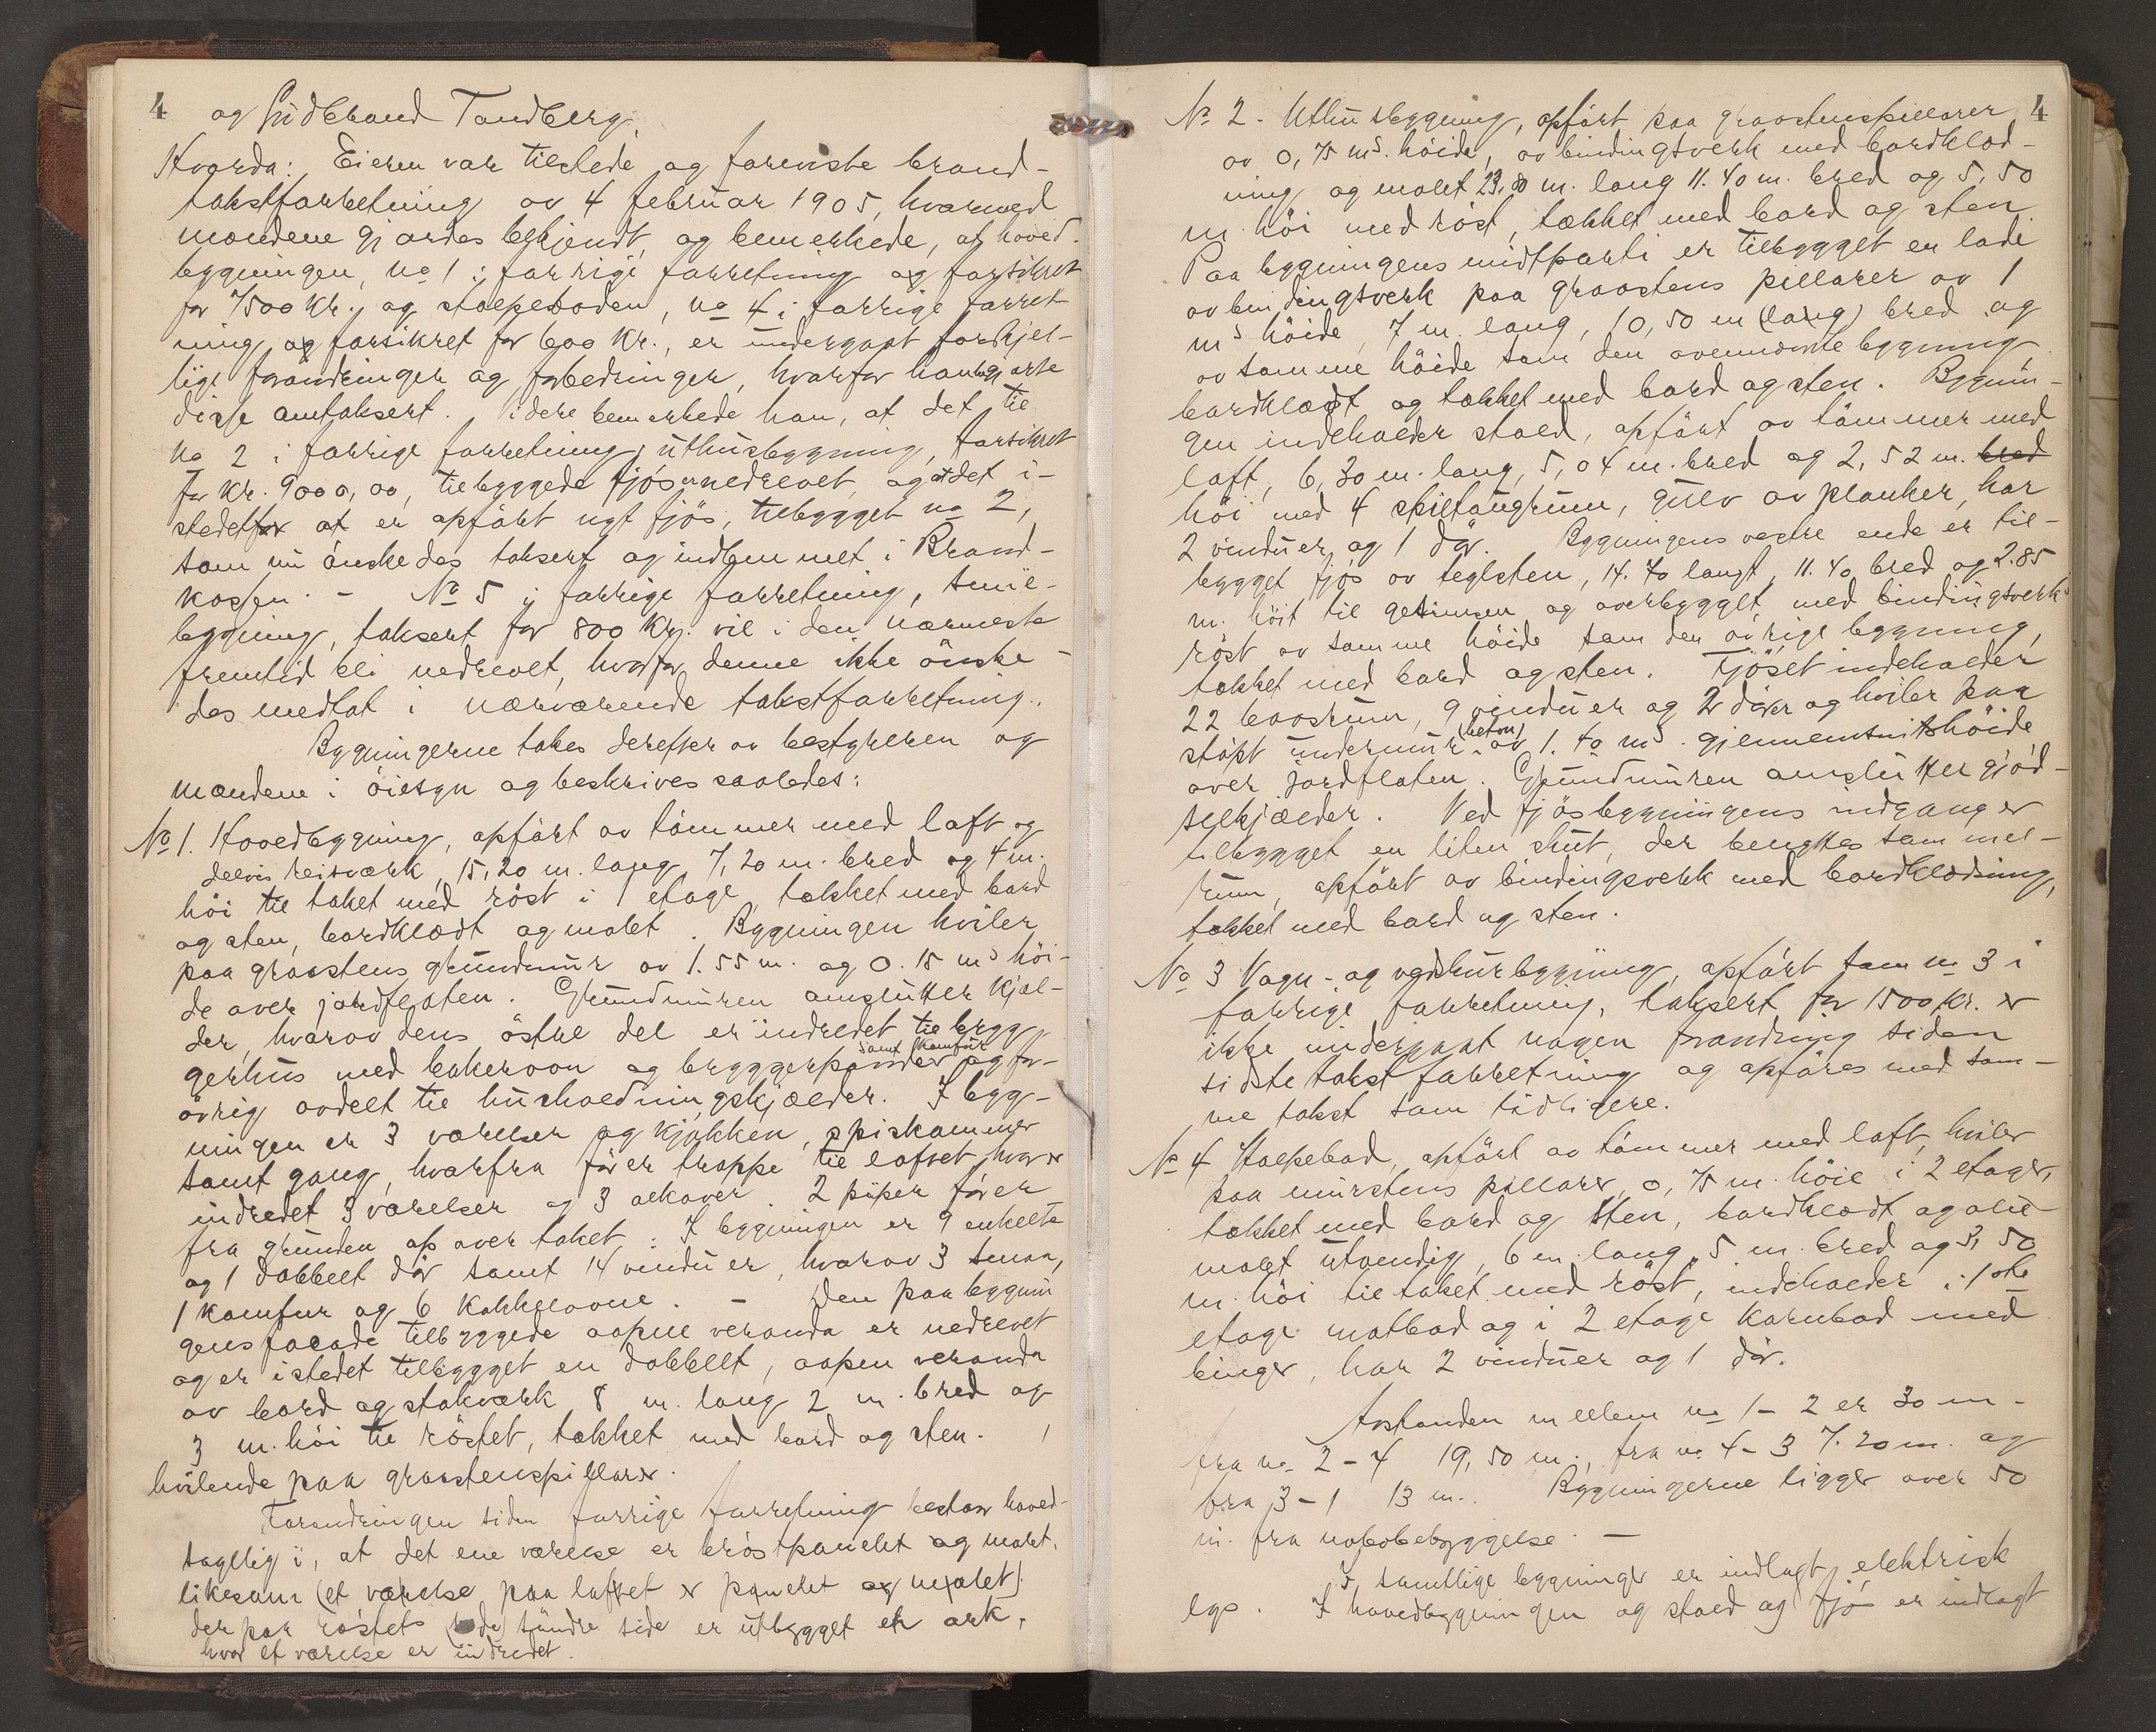 4 og Gudbrand Tandberg.
Hvorda: Eieren var tilstede og foreviste brand-
takstforretning av 4 februar 1905, hvormed
mændene gjordes bekjendt, og bemerkede, at hoved-
bygningen, no 1 i forrige forretning og forsikret
for 7500 kr., og stolpeboden, no 4 i forrige forret-
ning og forsikret for 600 kr., er undergaat forskjel-
lige forandringer og forbedringer, hvorfor han begjærte
disse omtaksert. Videre bemerkede han, at det til
no 2 i forrige forretning, uthusbygning, forsikret
for kr. 9000,00, tilbyggede fjøs er nedrevet, og at det i-
stedetfor at er opført nyt fjøs, tilbygget no 2,
som nu ønskedes taksert og indlemmet i Brand-
kassen. - No 5 i forrige forretning, smie-
bygning, taksert for 800 kr. vil i den nærmeste
fremtid bli nedrevet, hvorfor denne ikke ønske-
des medtat i nærværende takstforretning.
Bygningerne tokes derefter av bestyreren og
mændene i øiesyn og beskrives saaledes:
No 1. Hovedbygning, opført av tømmer med loft og
delvis reisværk, 15,20 m. lang 7,20 m. bred og 4 m.
høi til taket med røst i 1 etage, tækket med bord
og sten, bordklædt og malet. Bygningen hviler
paa graastens grundmur av 1.55 m. og 0.15 ms høi-
de over jordflaten. Grundmuren omslutter kjæl-
der, hvorav dens østre del er indredet til bryg-
gerhus med bakerovn og bryggerpander samt komfür og for-
øvrig avdelt til husholdningskjælder. I byg-
ningen er 3 værelser og kjøkken, spiskammer
samt gang, hvorfra fører trappe til loftet, hvor er
indredet 3 værelser og 3 alkover. 2 piper fører
fra grunden op over taket. I bygningen er 9 enkelte
og 1 dobbelt dør samt 14 vinduer, hvorav 3 smaa,
1 komfur og 6 kakkelovne. - Den paa bygnin
gens facade tilbyggede aapne veranda er nedrevet
og er istedet tilbygget en dobbelt, aapen veranda
av bord og stakværk 8 m. lang 2 m. bred og
3 m. høi til røstet, tækket med bord og sten.
hvilende paa graastenspillarer.
Forandringen siden forrige forretning bestaar hoved-
sagelig i, at det ene værelse er brøstpanelet og malet,
likesom (et værelse paa loftet er panelet og malet)
der paa røstets søndre side er utbygget en ark,
hvor et værelse er indredet.
No 2. Uthusbygning, opført paa graastenspillarer 4
av 0,75 ms. høide, av bindingsverk med bordklæd-
ning og malet 23,80 m. lang 11.40 m. bred og 5,50
m. høi med røst, tækket med bord og sten
Paa bygningens midtparti er tilbygget en lade
av bindingsverk paa graastens pillarer av 1
ms høide, 7 m. lang, 10,50 m (lang) bred og
av samme høide som den ovennævnte bygning,
bordklædt og tækket med bord og sten. Bygnin-
gen indeholder stald, opført av tømmer med
loft, 6,30 m. lang, 5,04 m. bred og 2,52 m. bred
høi med 4 spiltaugrum, gulv av planker, har
2 vinduer og 1 dør. Bygningens vestre ende er til-
bygget fjøs av teglsten, 14.70 langt, 11.40 bred og 2.85
m. høit til gesimsen og overbygget med bindingsverks
røst av samme høide som den øvrige bygning,
tækket med bord og sten. Fjøset indeholder
22 baasrum, 9 vinduer og 2 dører og hviler paa
støpt undermur (beton) av 1.40 ms. gjennemsnitshøide
over jordflaten. Grundmuren omslutter gjød-
selkjælder. Ved fjøsbygningens indgang er
tilbygget en liten skut, der benyttes som mel-
krum, opført av bindingsverk med bordklædning,
tækket med bord og sten.
No 3 Vogn- og vedskurbygning, opført som no 3 i
forrige forretning, taksert for 1500 kr. er
ikke undergaat nogen forandring siden
sidste takstforretning og opføres med sam-
me takst som tidligere.
No 4 Stolpebod, opført av tømmer med loft, hviler
paa murstens pillarer, 0,75 m. høie i 2 etager,
tækket med bord og sten, bordklædt og olie-
malet utvendig, 6 m. lang, 5 m. bred og 3,50
m. høi til taket med røst, indeholder i 1ste
etage matbod og i 2 etage kornbod med
binger, har 2 vinduer og 1 dør.
Avstanden mellem no 1 - 2 er 30 m.
fra no 2 - 4 19,50 m., fra no 4 - 3 7.20 m. og
fra 3 - 1 13 m. Bygningerne ligger over 50
m. fra nabobebyggelse. -
I samtlige bygninger er indlagt elektrisk
lys. I hovedbygningen og stald og fjøs er indlagt